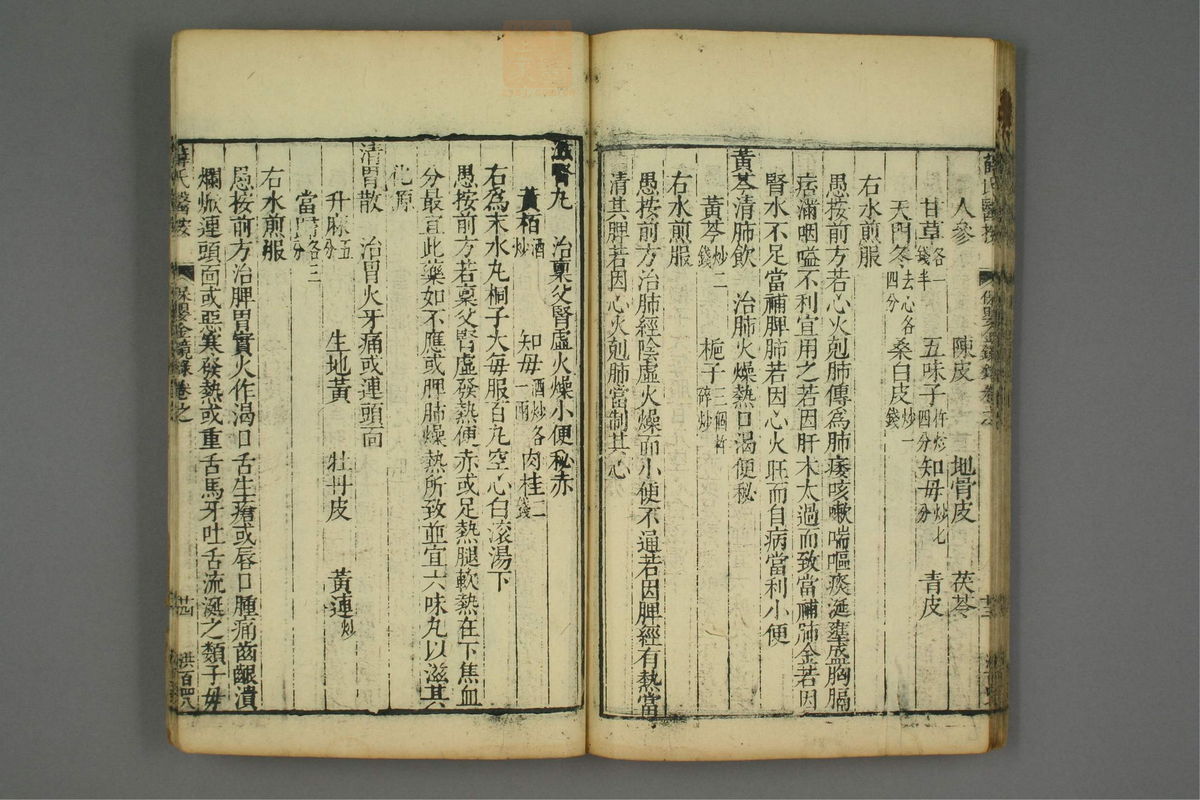 人參　陳皮　地骨皮　茯苓
甘草各一錢半　五味子杵炒四分　知母炒七分　青皮
天門冬去心各四分　桑白皮炒一錢
右水煎服
愚按前方若心火剋肺傳爲肺痿咳嗽喘嘔痰涎壅盛胸膈
痞滿咽嗌不利宜用之若因肝木太過而致當補肺金若因
腎水不足當補脾肺若因心火旺而自病當利小便
黃芩清肺飲　治肺火燥熱口渴便秘
黃芩炒二錢　梔子三個杵碎炒
右水煎服
愚按前方治肺經陰虛火燥而小便不通若因脾經有熱當
清其脾若因心火剋肺當制其心
滋腎丸　治稟父腎虛火燥小便秘赤
黃栢酒炒　知母酒炒各一兩　肉桂二錢
右爲末水丸桐子大每服百丸空心白滾湯下
愚按前方若稟父腎虛發熱便赤或足熱腿軟熱在下焦血
分最宜此藥如不應或脾肺燥熱所致並宜六味丸以滋其
化原
清胃散　治胃火牙痛或連頭面
升麻五分　生地黃　牡丹皮　黃連炒
當歸各三分
右水煎服
愚按前方治脾胃實火作渴口舌生瘡或唇口腫痛齒齦潰
爛焮連頭面或惡寒發熱或重舌馬牙吐舌流涎之類子母
薛氏醫按　保嬰金鏡錄卷之　廿四　洪百四八